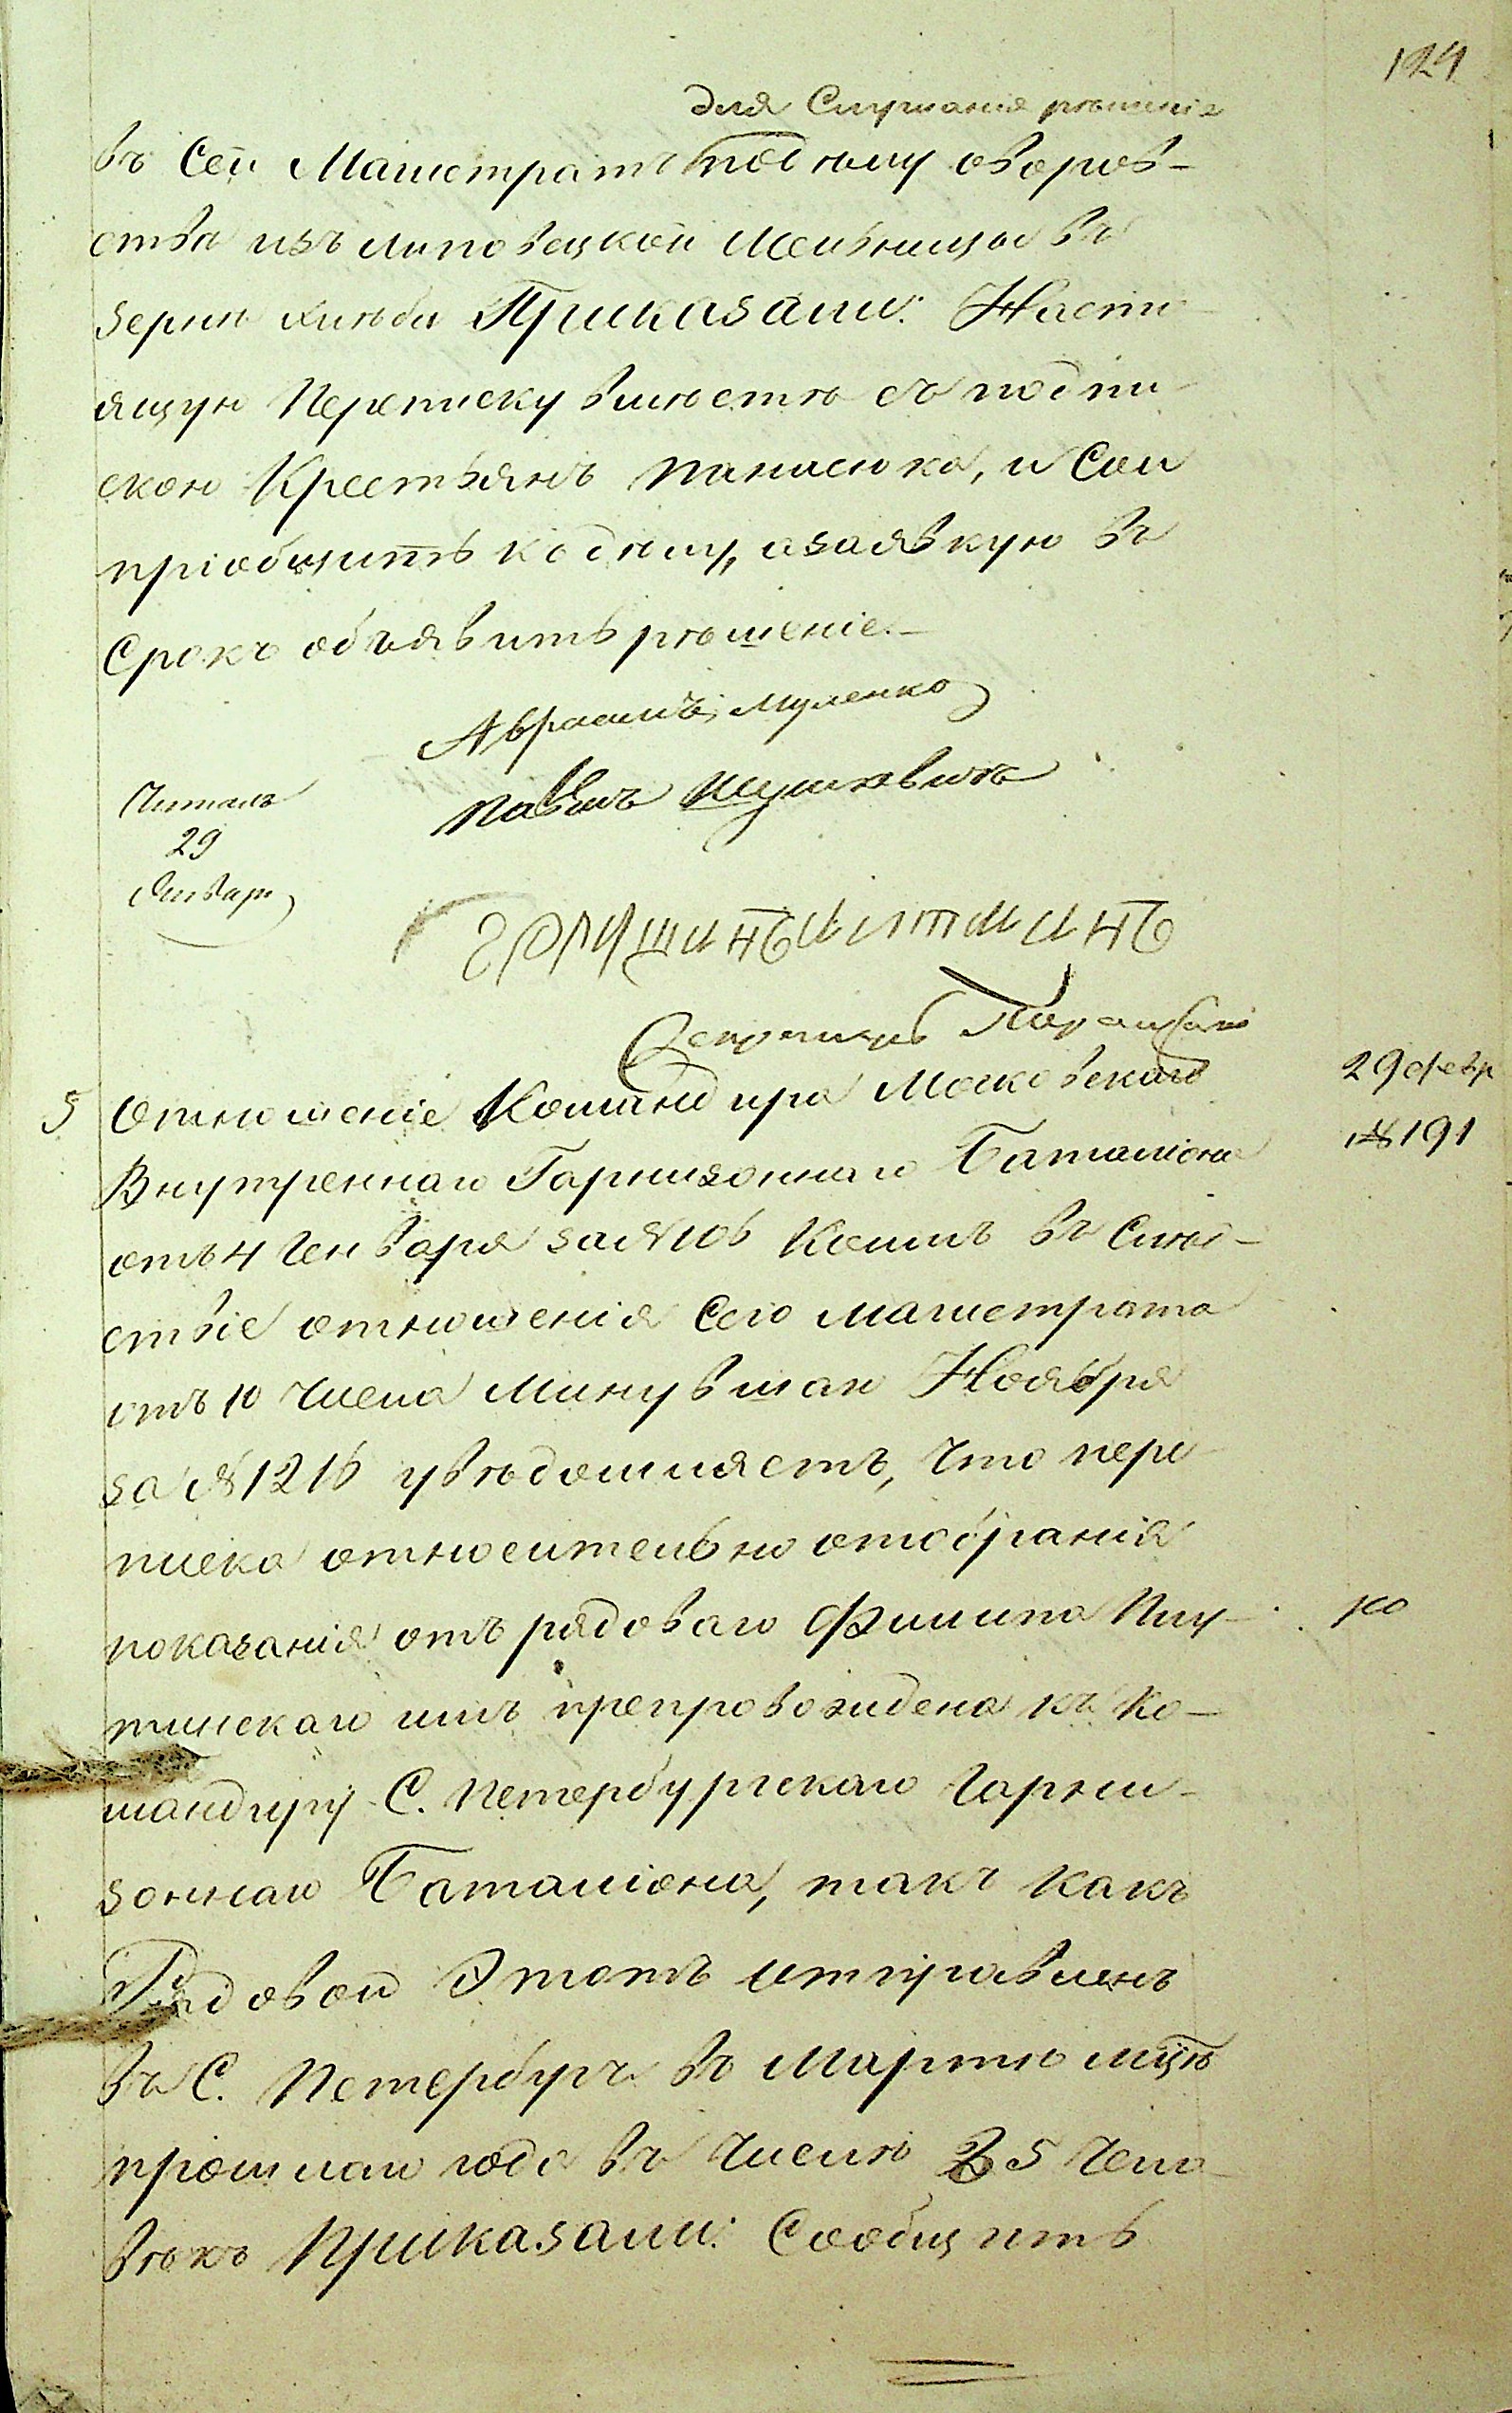 124
для Слушанія рѣшенія
въ Сей Магистратъ по дѣлу оворов-
ства изъ липовецкой мельницы въ
зернѣ хлѣба Приказали: Насто-
ящую Переписку вмѣстѣ съ подпи-
скою Крестьянъ Панасюка, и Сои
пріобщить къ дѣлу, а заявкую въ
Срокъ объявить рѣшеніе.-
Аврамъ Муленко
Павелъ
Читалъ
29
Январ
Секретарь
5 Отношеніе Командира Московскаго
29 февр
№ 191
Внутреннаго Гарнизоннаго Баталіона
отъ 4 Генваря за № 106 Коимъ въ Слѣд-
ствіе отношенія Сего магистрата
отъ 10 числа Минувшаго Ноября
за № 1216 увѣдомляетъ, что пере-
писка относительно отобранія
показанія отъ рядоваго Филипа Плу-
тинскаго имъ препровождена къ Ко-
мандиру С. Петербургскаго Гарни-
зоннаго Баталіона, такъ какъ
Рядовой Этотъ отправленъ
въ С. Петербургъ въ Мартѣ мцѣ
прошлаго года въ Числѣ 25 Чело-
вѣкъ Приказали: Сообщить